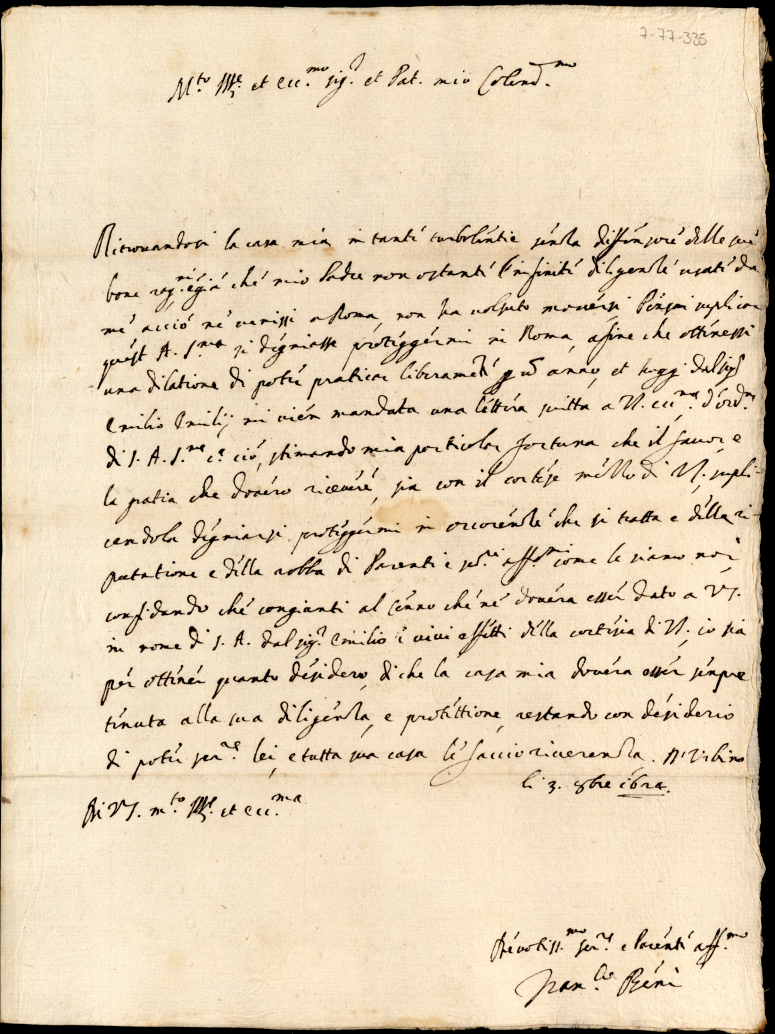 7-77-335
M.to Ill.re et ecc.mo sig.r et Pat. mio Colend.mo
Ritrouandosi la casa mia in tanti turbolentie senza diffensore delle sue
bone rag.ni e già ché mio Padre non ostanti l'infinité diligenzé usaté da
mé acciò né venissi a Roma, non ha volsuto mouersi Pensai suplicar
quest A. S.ma si degniasse protéggermi in Roma, afine che ottinessi
una dilatione di poter praticar liberamété p un anno, et hoggi dal sig.r
Emilio Emilij mi vién mandata una léttera scritta a VS. ecc.ma d'ord.ne
di S. A. S.ma ciò, stimando mia particolar fortuna che il fauor, e
la gratia che douero riceueré, sia con il cortése mézzo di VS. supli-
candola dégniarsi protéggermi in occorénzé che si tratta e délla ri-
putatione e délla robba di Parenti e ser.ri aff.mi come le siamo noi
confidando ché congionti al Cénno ché né douéra essér dato a VS.
in nome di S. A. dal sig.r Emilio i vivi effétti délla cortésia di VS. io sia
pér otténer quanto désidero, di che la casa mia douéra essér sémpre
tenuta alla sua diligénza, e protéttione, restando con désiderio
di potér ser.re lei, e tutta sua casa lé faccio riuerenza. Di Urbino
li 3. 8bre 1612.
Di VS. m.to Ill.re et ecc.ma
Deuotiss.mo ser.re e Parénté aff.mo
Fran.co Béni